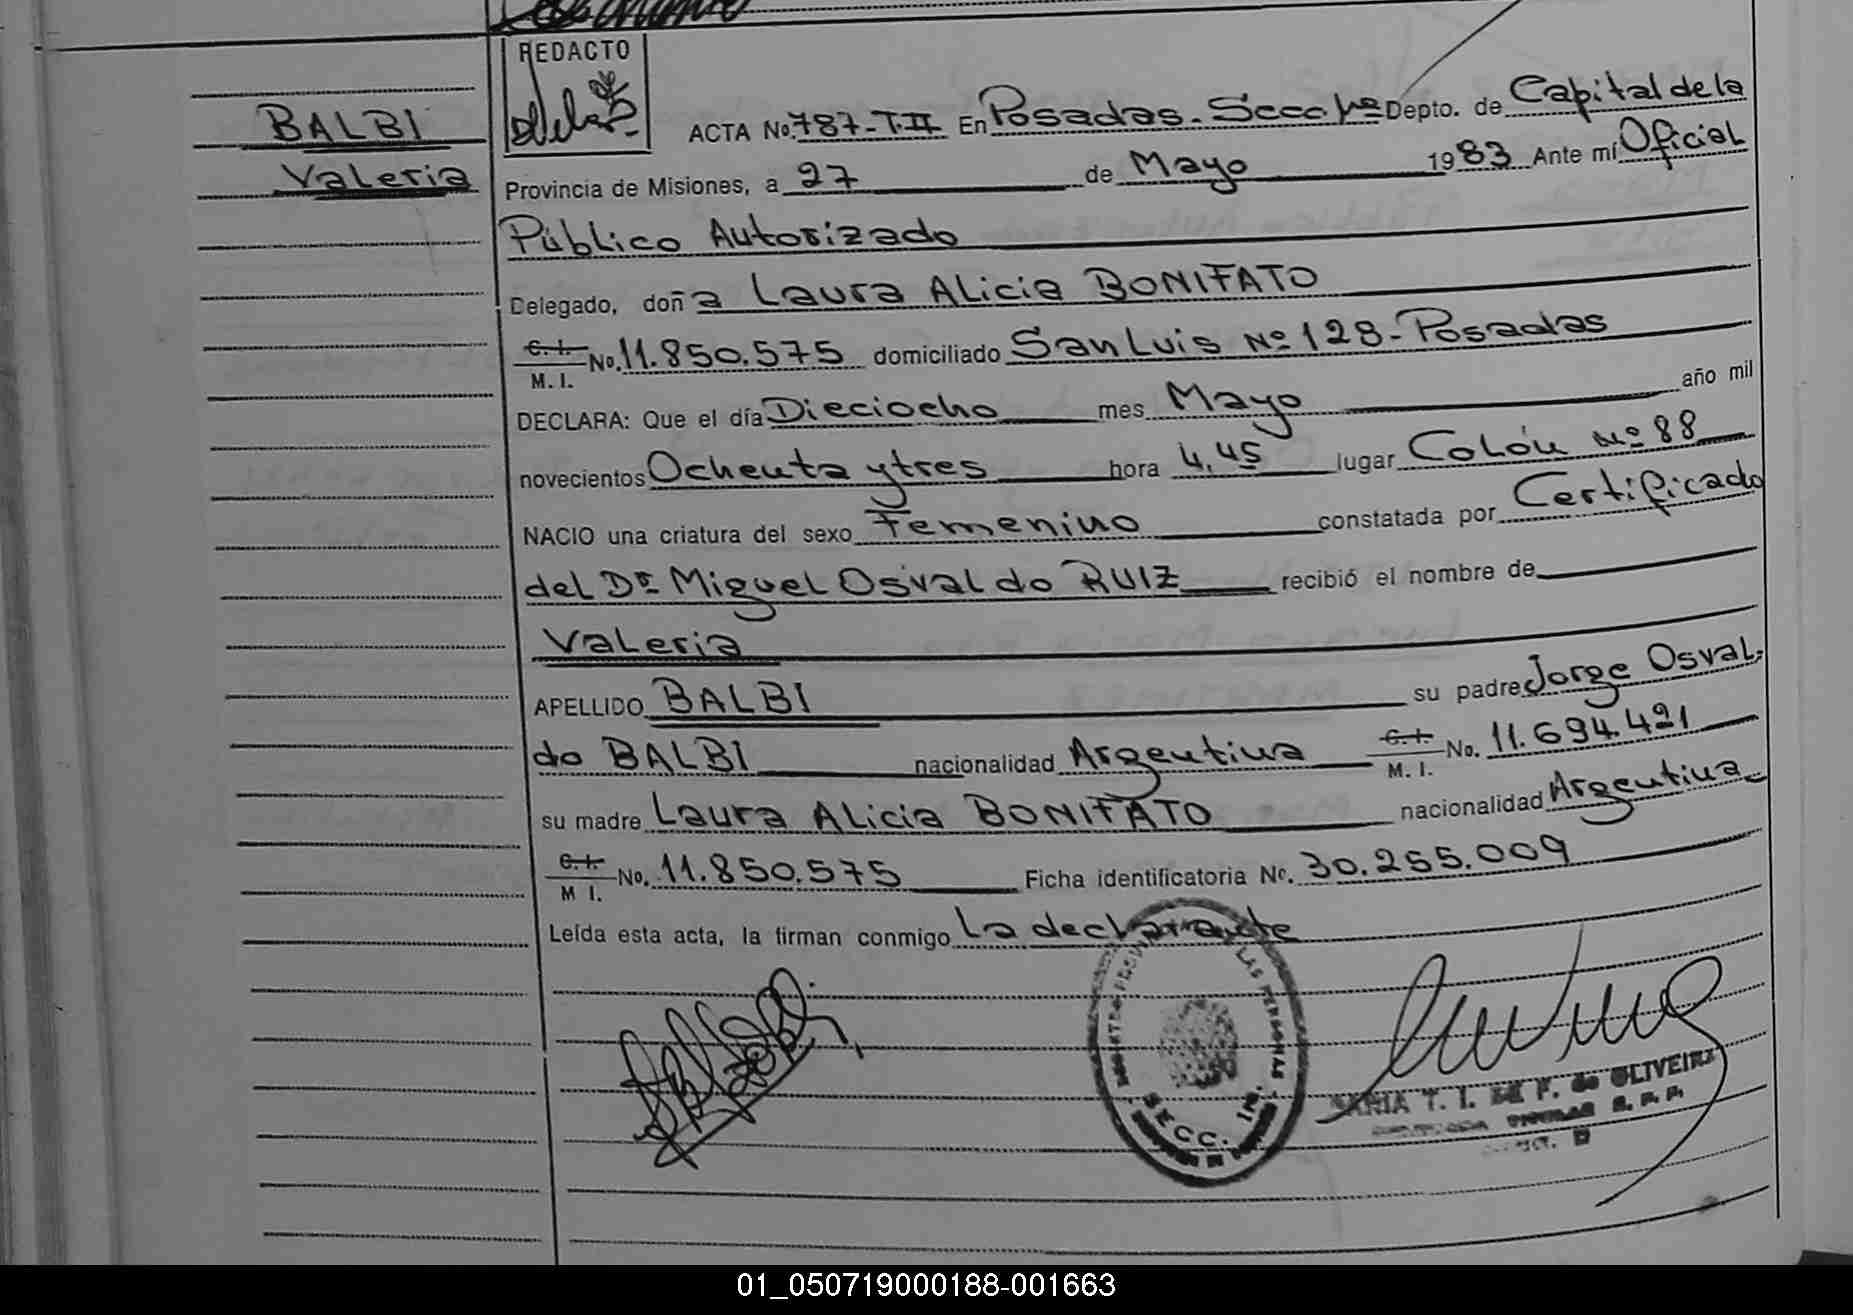 REDACTO
BALBI
Valeria
ACTA No. 787-T.II En Posadas. Secc 1ra Depto. de Capital de la
Provincia de Misiones, a 27 de Mayo 1983 Ante mí Oficial
Público Autorizado
Delegado, doña Laura Alicia BONIFATO
C.I. M.I. No. 11.850.575 domiciliado San Luis Nº 128-Posadas
DECLARA: Que el día Dieciocho mes Mayo año mil
novecientos Ochenta y tres hora 4,45 lugar Colón Nº 88
NACIO una criatura del sexo Femenino constatada por Certificado
del Dr Miguel Osvaldo RUIZ recibió el nombre de
Valeria
APELLIDO BALBI su padre Jorge Osval
do BALBI nacionalidad Argentina C.I. M.I. No. 11.694.421
su madre Laura Alicia BONIFATO nacionalidad Argentina
C.I. M I. No. 11.850.575 Ficha identificatoria No. 30.255.009
Leída esta acta, la firman conmigo La declarante
LAS PERSONAS
SECC. 1ra.
MARIA T. I. de OLIVEIRA
01_050719000188-001663